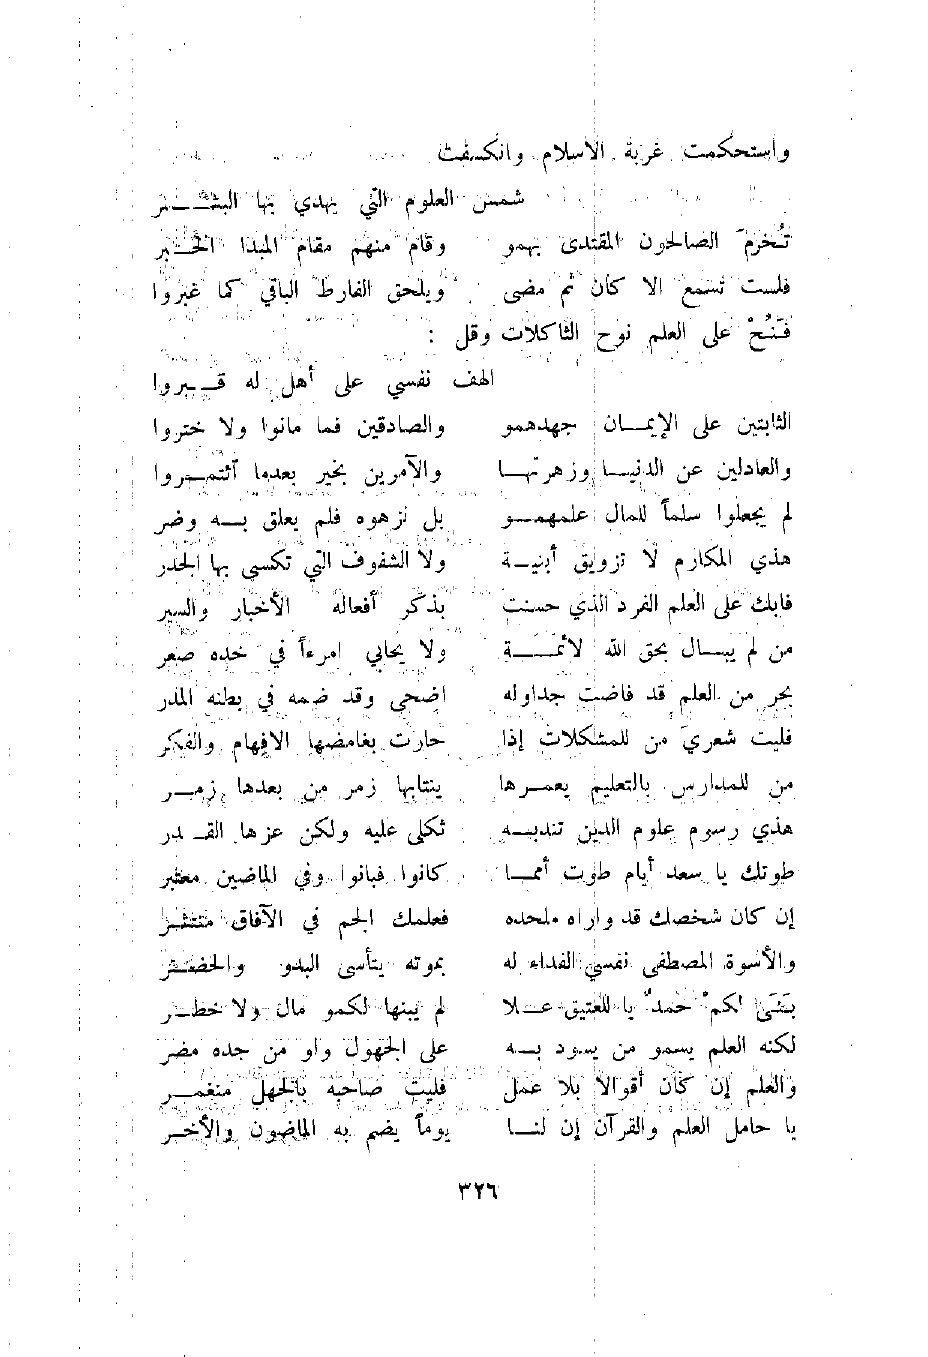 واستحكمت غربة الاسلام وانكسفت
شمس العلوم التي يهدي بها البشـــر
تُخرمَ الصالحون المقتدى بهمو وقام منهم مقام المبدا الخـبر
فلست تسمع الا كان ثم مضى ويلحق الفارط الباقي كما غبروا
فَنُحْ على العلم نوح الثاكلات وقل :
الهف نفسي على أهل له قـبروا
الثابتين على الإيمـــان جهدهمو والصادقين فما مانوا ولا ختروا
والعادلين عن الدنيــا وزهرتهـا والآمرين بخير بعدما أئتمـروا
لم يجعلوا سلماً للمال علمهمـو بل نزهوه فلم يعلق بــه وضر
هذي المكارم لا تزويق أبنيـة ولا الشفوف التي تكسى بها الجدر
فابك على العلم الفرد الذي حسنت بذكر أفعاله الأخبار والسير
من لم يبــال بحق الله لائمـــة ولا يحابي امرءاً في خده صعر
بحر من العلم قد فاضت جداوله اضحى وقد ضمه في بطنه المدر
فليت شعري من للمشكلات إذا حارت بغامضها الافهام والفكر
من للمدارس بالتعليم يعمـرها ينتابها زمر من بعدها زمـر
هذي رسوم علوم الدين تندبـه ثكلى عليه ولكن عزها القـدر
طوتك يا سعد أيام طوت أممـا كانوا فبانوا وفي الماضين معتبر
إن كان شخصك قد واراه ملحده فعلمك الجم في الآفاق منتشـر
والأسوة المصطفى نفسي الفداء له بموته يتأسى البدو والحضـر
بَنَى لكم حَمدٌ يا للعتيق عـلا لم يبنها لكمو مال ولا خطـر
لكنه العلم يسمو من يسود بـه على الجهول ولو من جده مضر
والعلم إن كان أقوالا بلا عمل فليت صاحبه بالجهل منغمـر
يا حامل العلم والقرآن إن لنــا يوماً يضم به الماضون والأخـر
٣٢٦